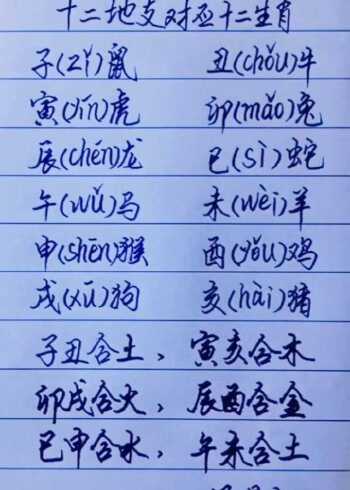 十二地支对应十二生肖
子(zǐ)鼠 丑(chǒu)牛
寅(yín)虎 卯(mǎo)兔
辰(chén)龙 巳(sì)蛇
午(wǔ)马 未(wèi)羊
申(shēn)猴 酉(yǒu)鸡
戌(xū)狗 亥(hài)猪
子丑合土，寅亥合木
卯戌合火，辰酉合金
巳申合水，午未合土